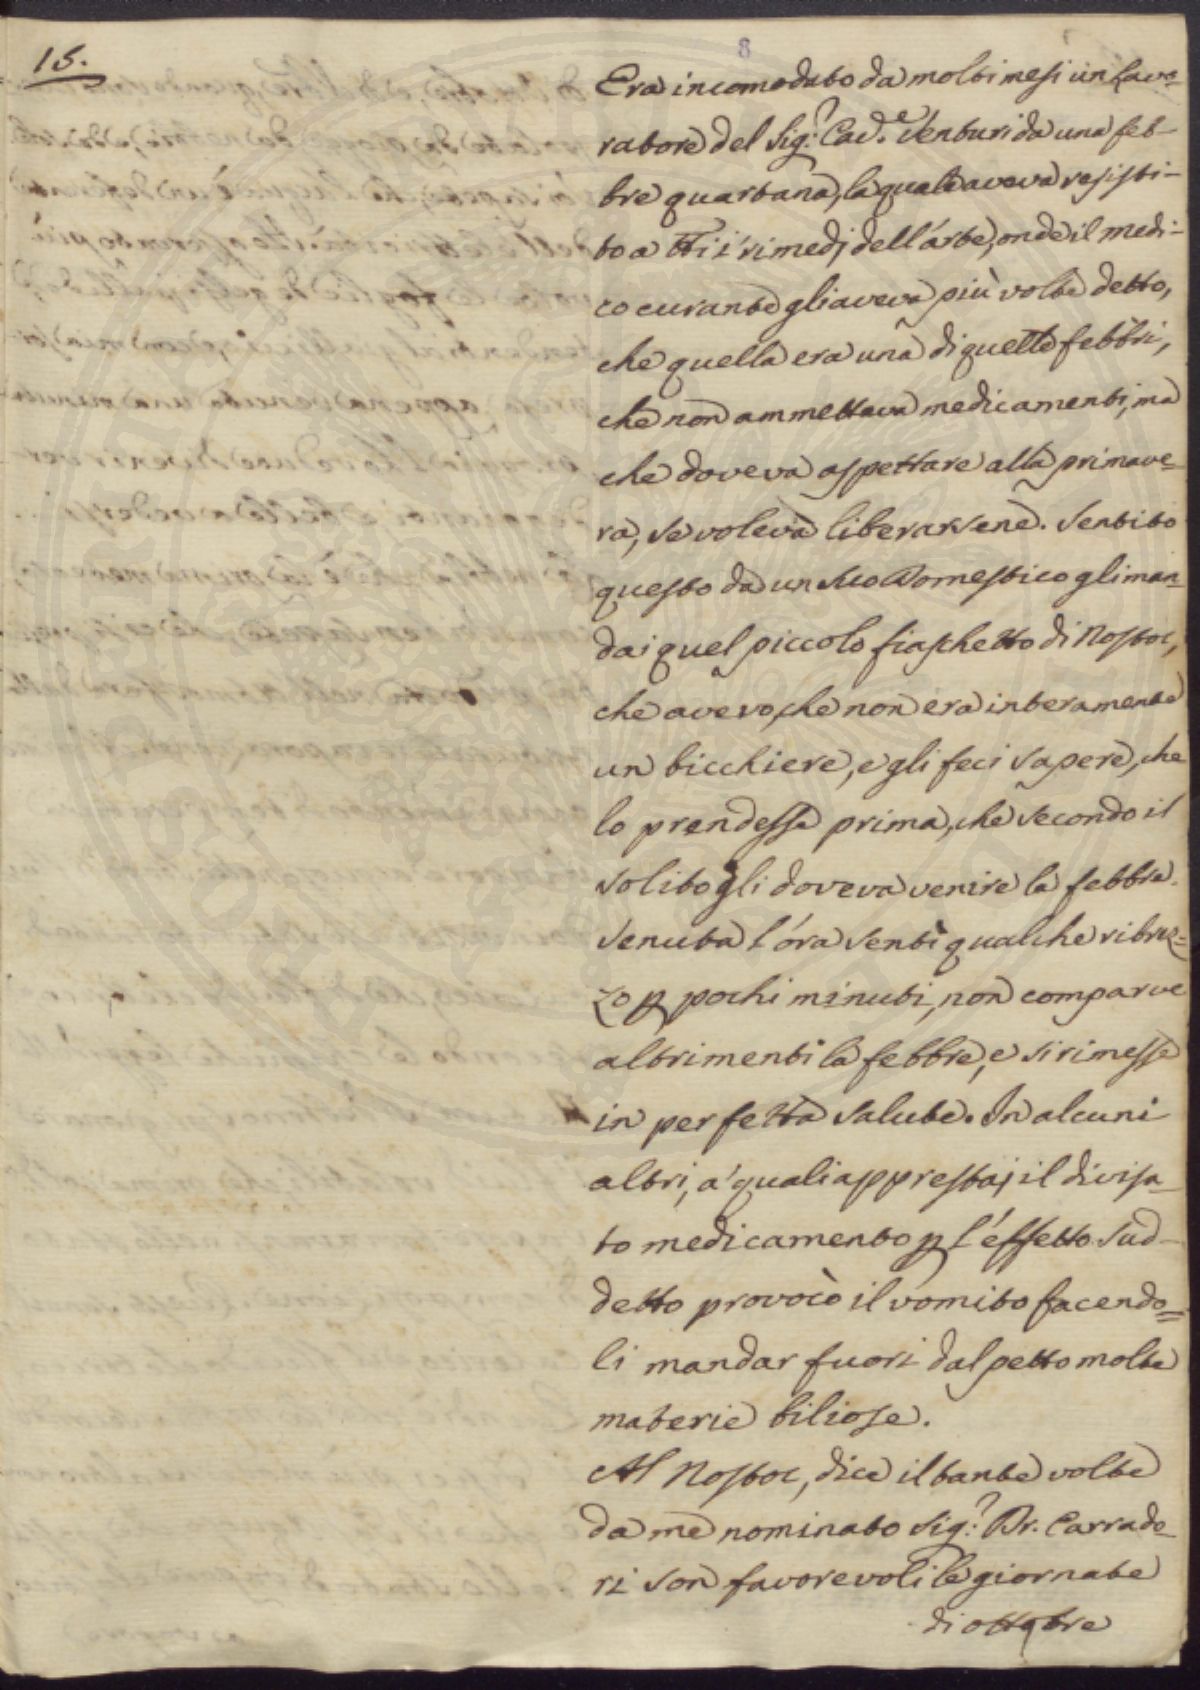 15.
8
Era incomodato da molti mesi un lavo-
ratore del Sig.r Cav.e Venturi da una feb-
bre quartana, la quale aveva resisti-
to a tti i rimedj dell'arte, onde il medi-
co curante gli aveva più volte detto,
che quella era una di quelle febbri,
che non ammetteva medicamenti, ma
che doveva aspettare alla primave-
ra, se voleva liberarsene. Sentito
questo da un suo Domestico gli man-
dai quel piccolo fiaschetto di Nostoc,
che avevo, che non era interamente
un bicchiere, e gli feci sapere, che
lo prendesse prima, che secondo il
solito gli doveva venire la febbre.
Venuta l'óra sentì qualche ribrez=
zo p pochi minuti, non comparve
altrimenti la febbre, e si rimesse
in perfetta salute. In alcuni
altri, a' quali apprestaj il divisa-
to medicamento p l'éffetto sud-
detto provocò il vomito facendo=
li mandar fuori dal petto molte
materie biliose.
Al Nostoc, dice il tante volte
da me nominato Sig.r Dr. Carrado-
ri son favorevoli le giornate
di ottobre